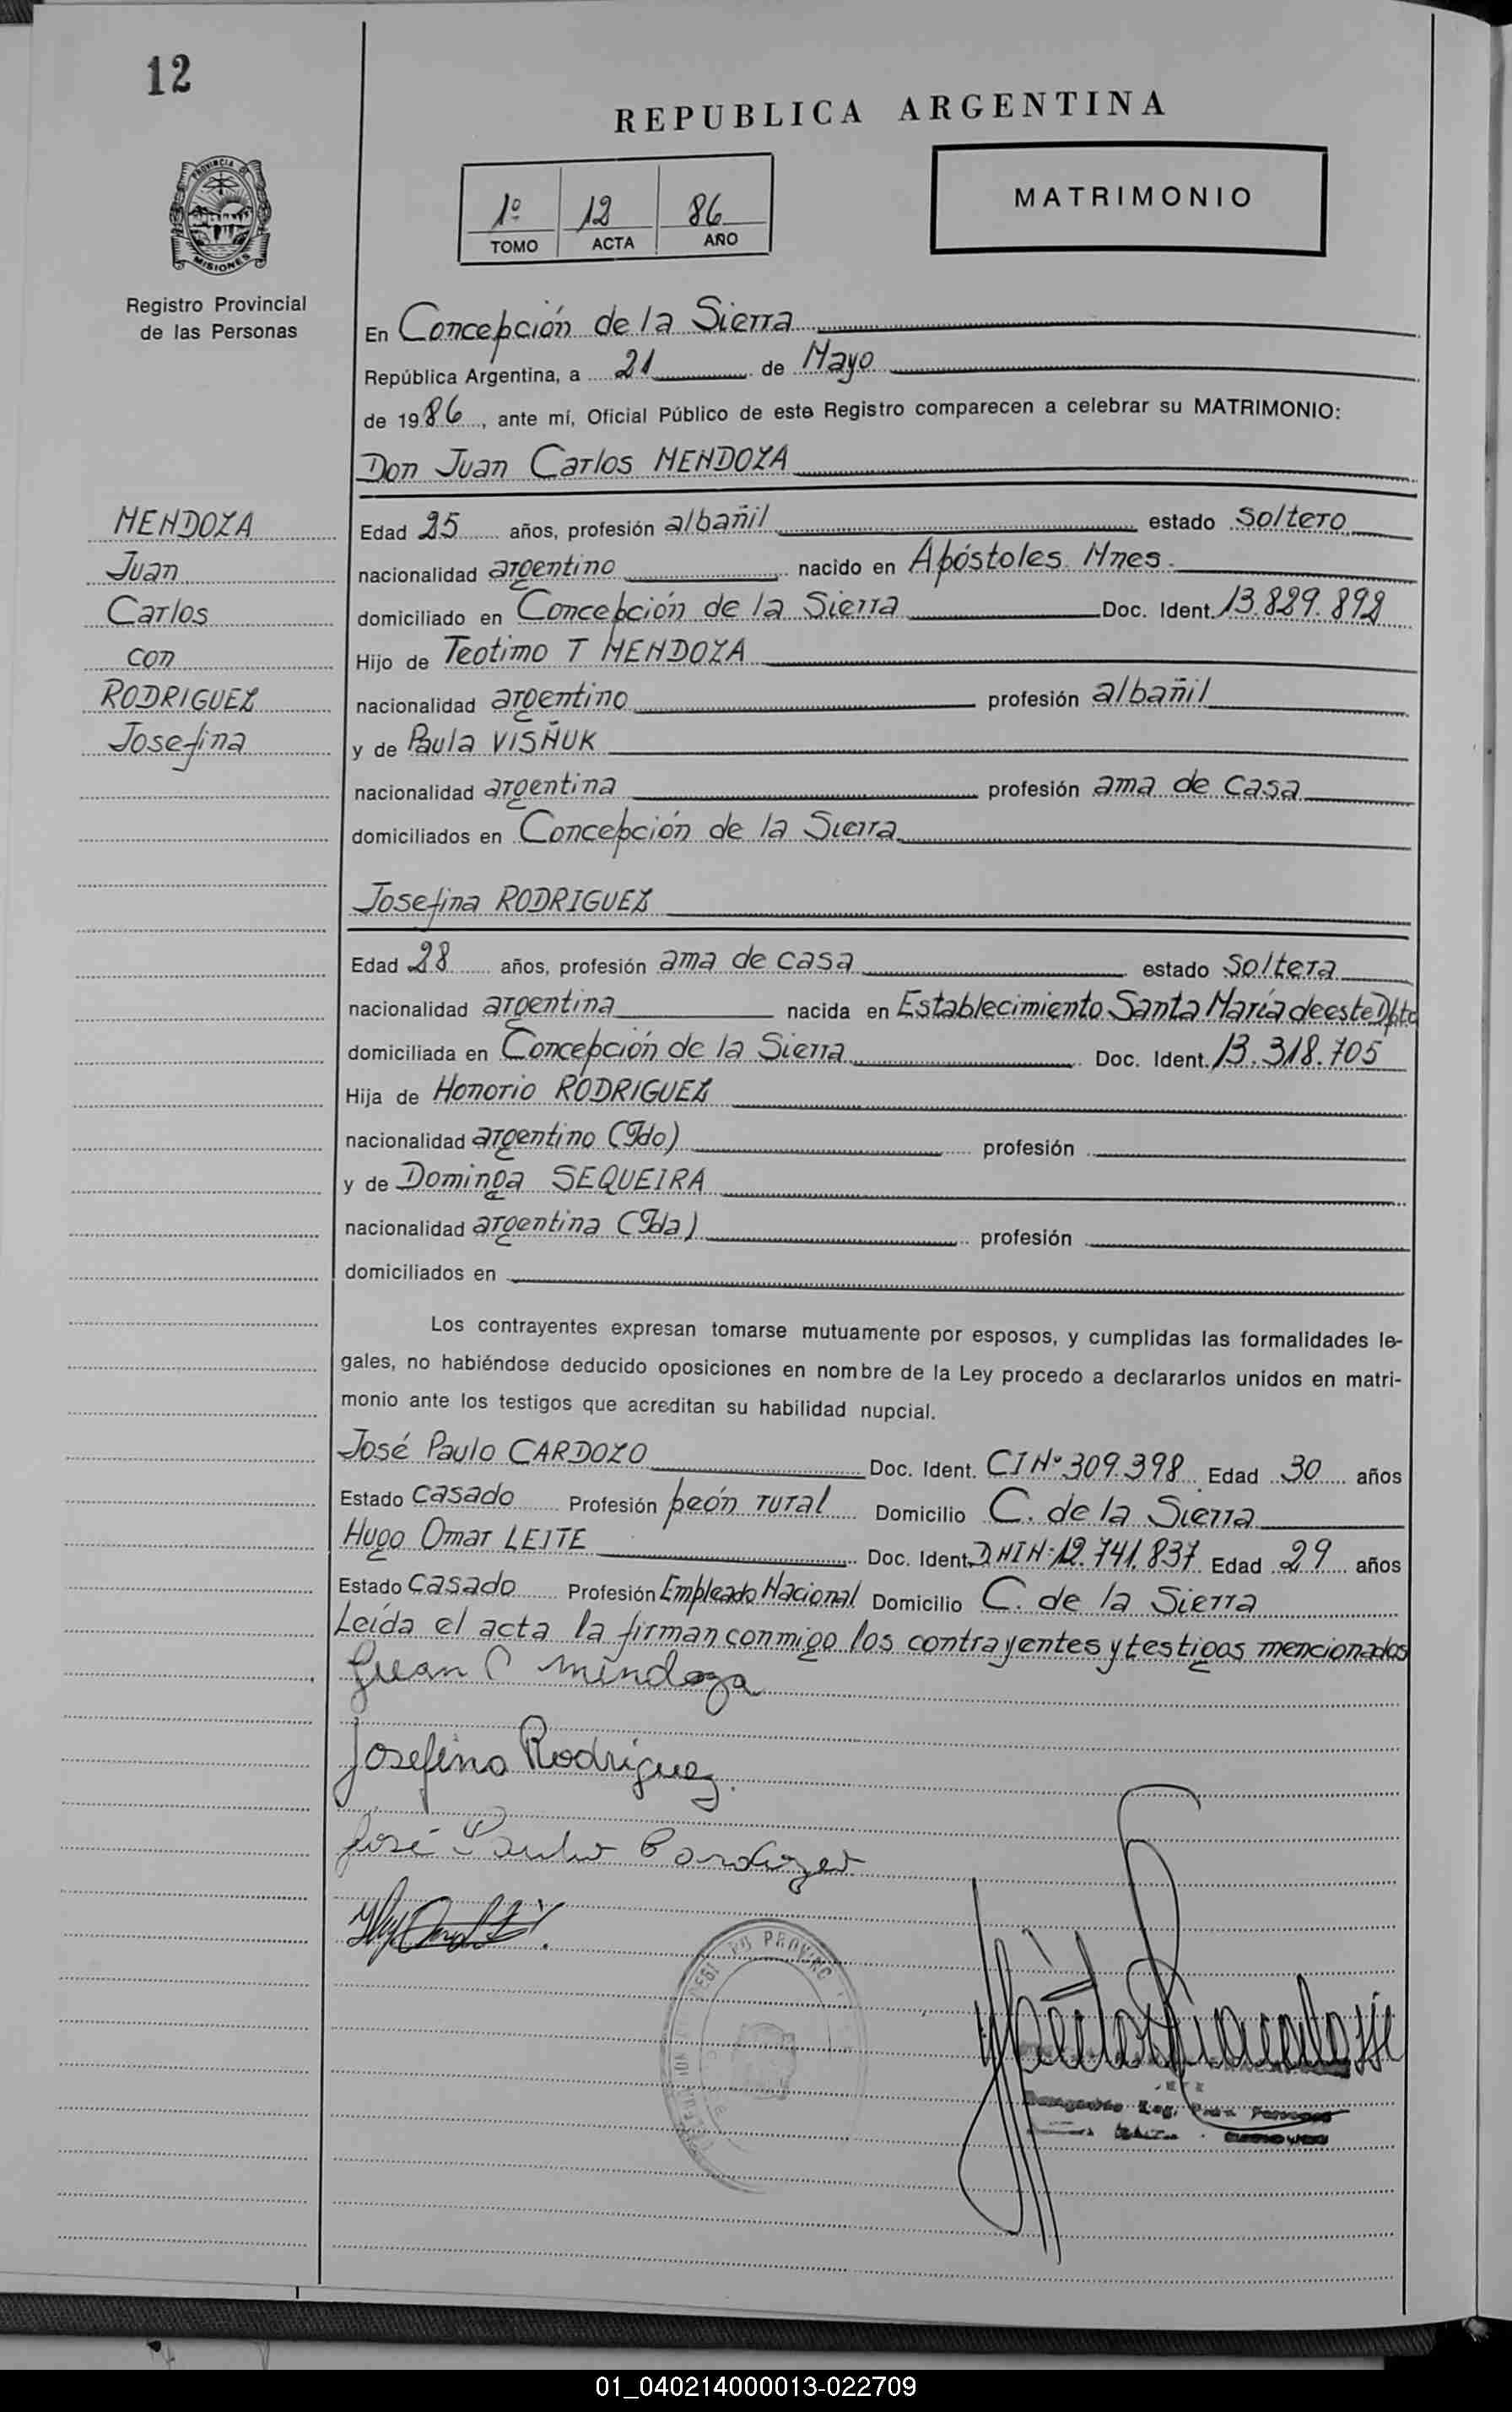 12
REPUBLICA ARGENTINA
1º 12 86
TOMO ACTA AÑO
MATRIMONIO
PROVINCIA DE
MISIONES
Registro Provincial
de las Personas
En Concepción de la Sierra
República Argentina, a 21 de Mayo
de 1986, ante mí, Oficial Público de este Registro comparecen a celebrar su MATRIMONIO:
Don Juan Carlos MENDOZA
MENDOZA
Juan
Carlos
con
RODRIGUEZ
Josefina
Edad 25 años, profesión albañil estado soltero
nacionalidad argentino nacido en Apóstoles Mnes.
domiciliado en Concepción de la Sierra Doc. Ident. 13.829.892
Hijo de Teotimo T MENDOZA
nacionalidad argentino profesión albañil
y de Paula VISÑUK
nacionalidad argentina profesión ama de casa
domiciliados en Concepción de la Sierra
Josefina RODRIGUEZ
Edad 28 años, profesión ama de casa estado soltera
nacionalidad argentina nacida en Establecimiento Santa María de este Dpto
domiciliada en Concepción de la Sierra Doc. Ident. 13.318.705
Hija de Honorio RODRIGUEZ
nacionalidad argentino (Fdo) profesión
y de Dominga SEQUEIRA
nacionalidad argentina (Fda) profesión
domiciliados en
Los contrayentes expresan tomarse mutuamente por esposos, y cumplidas las formalidades le-
gales, no habiéndose deducido oposiciones en nombre de la Ley procedo a declararlos unidos en matri-
monio ante los testigos que acreditan su habilidad nupcial.
José Paulo CARDOZO Doc. Ident. CI Nº 309.398 Edad 30 años
Estado casado Profesión peón rural Domicilio C. de la Sierra
Hugo Omar LEITE Doc. Ident. DNI Nº 12.741.837 Edad 29 años
Estado casado Profesión Empleado Nacional Domicilio C. de la Sierra
Leída el acta la firman conmigo los contrayentes y testigos mencionados
Juan C Mendoza
Josefina Rodriguez.
José Paulo Cardozo
01_040214000013-022709